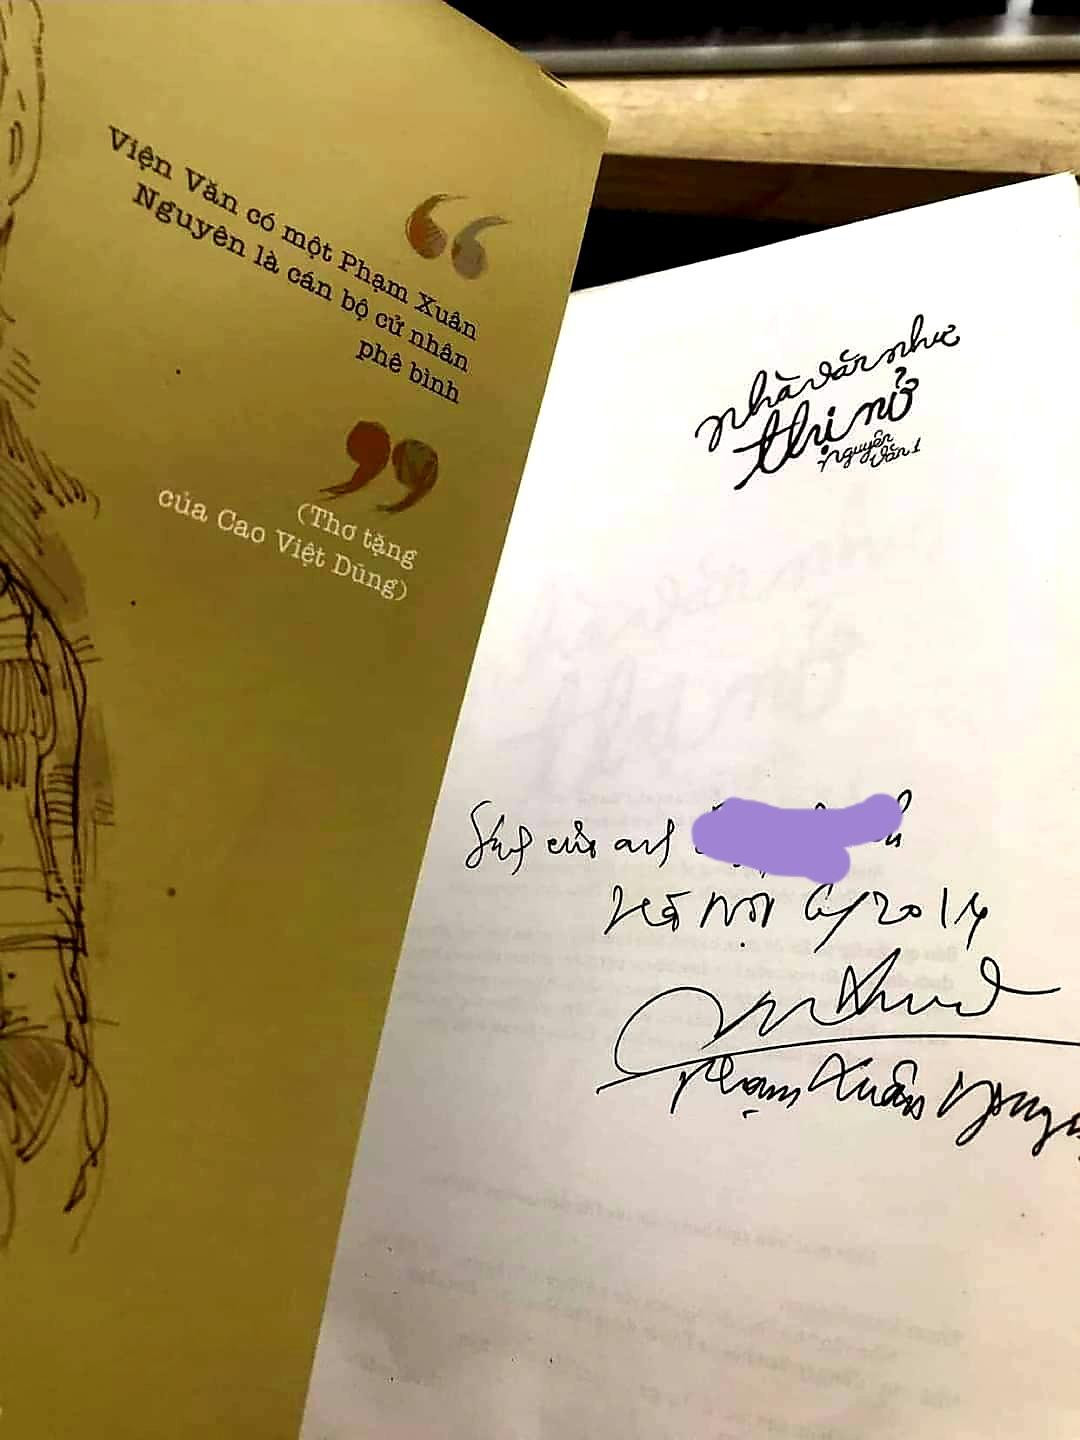 Viện Văn có một Phạm Xuân
Nguyên là cán bộ cử nhân
phê bình
(Thơ tặng
của Cao Việt Dũng)
nhà văn như
thị nở
nguyên
văn 1
của anh
Hà Nội 6/2014
Phạm Xuân Nguyê